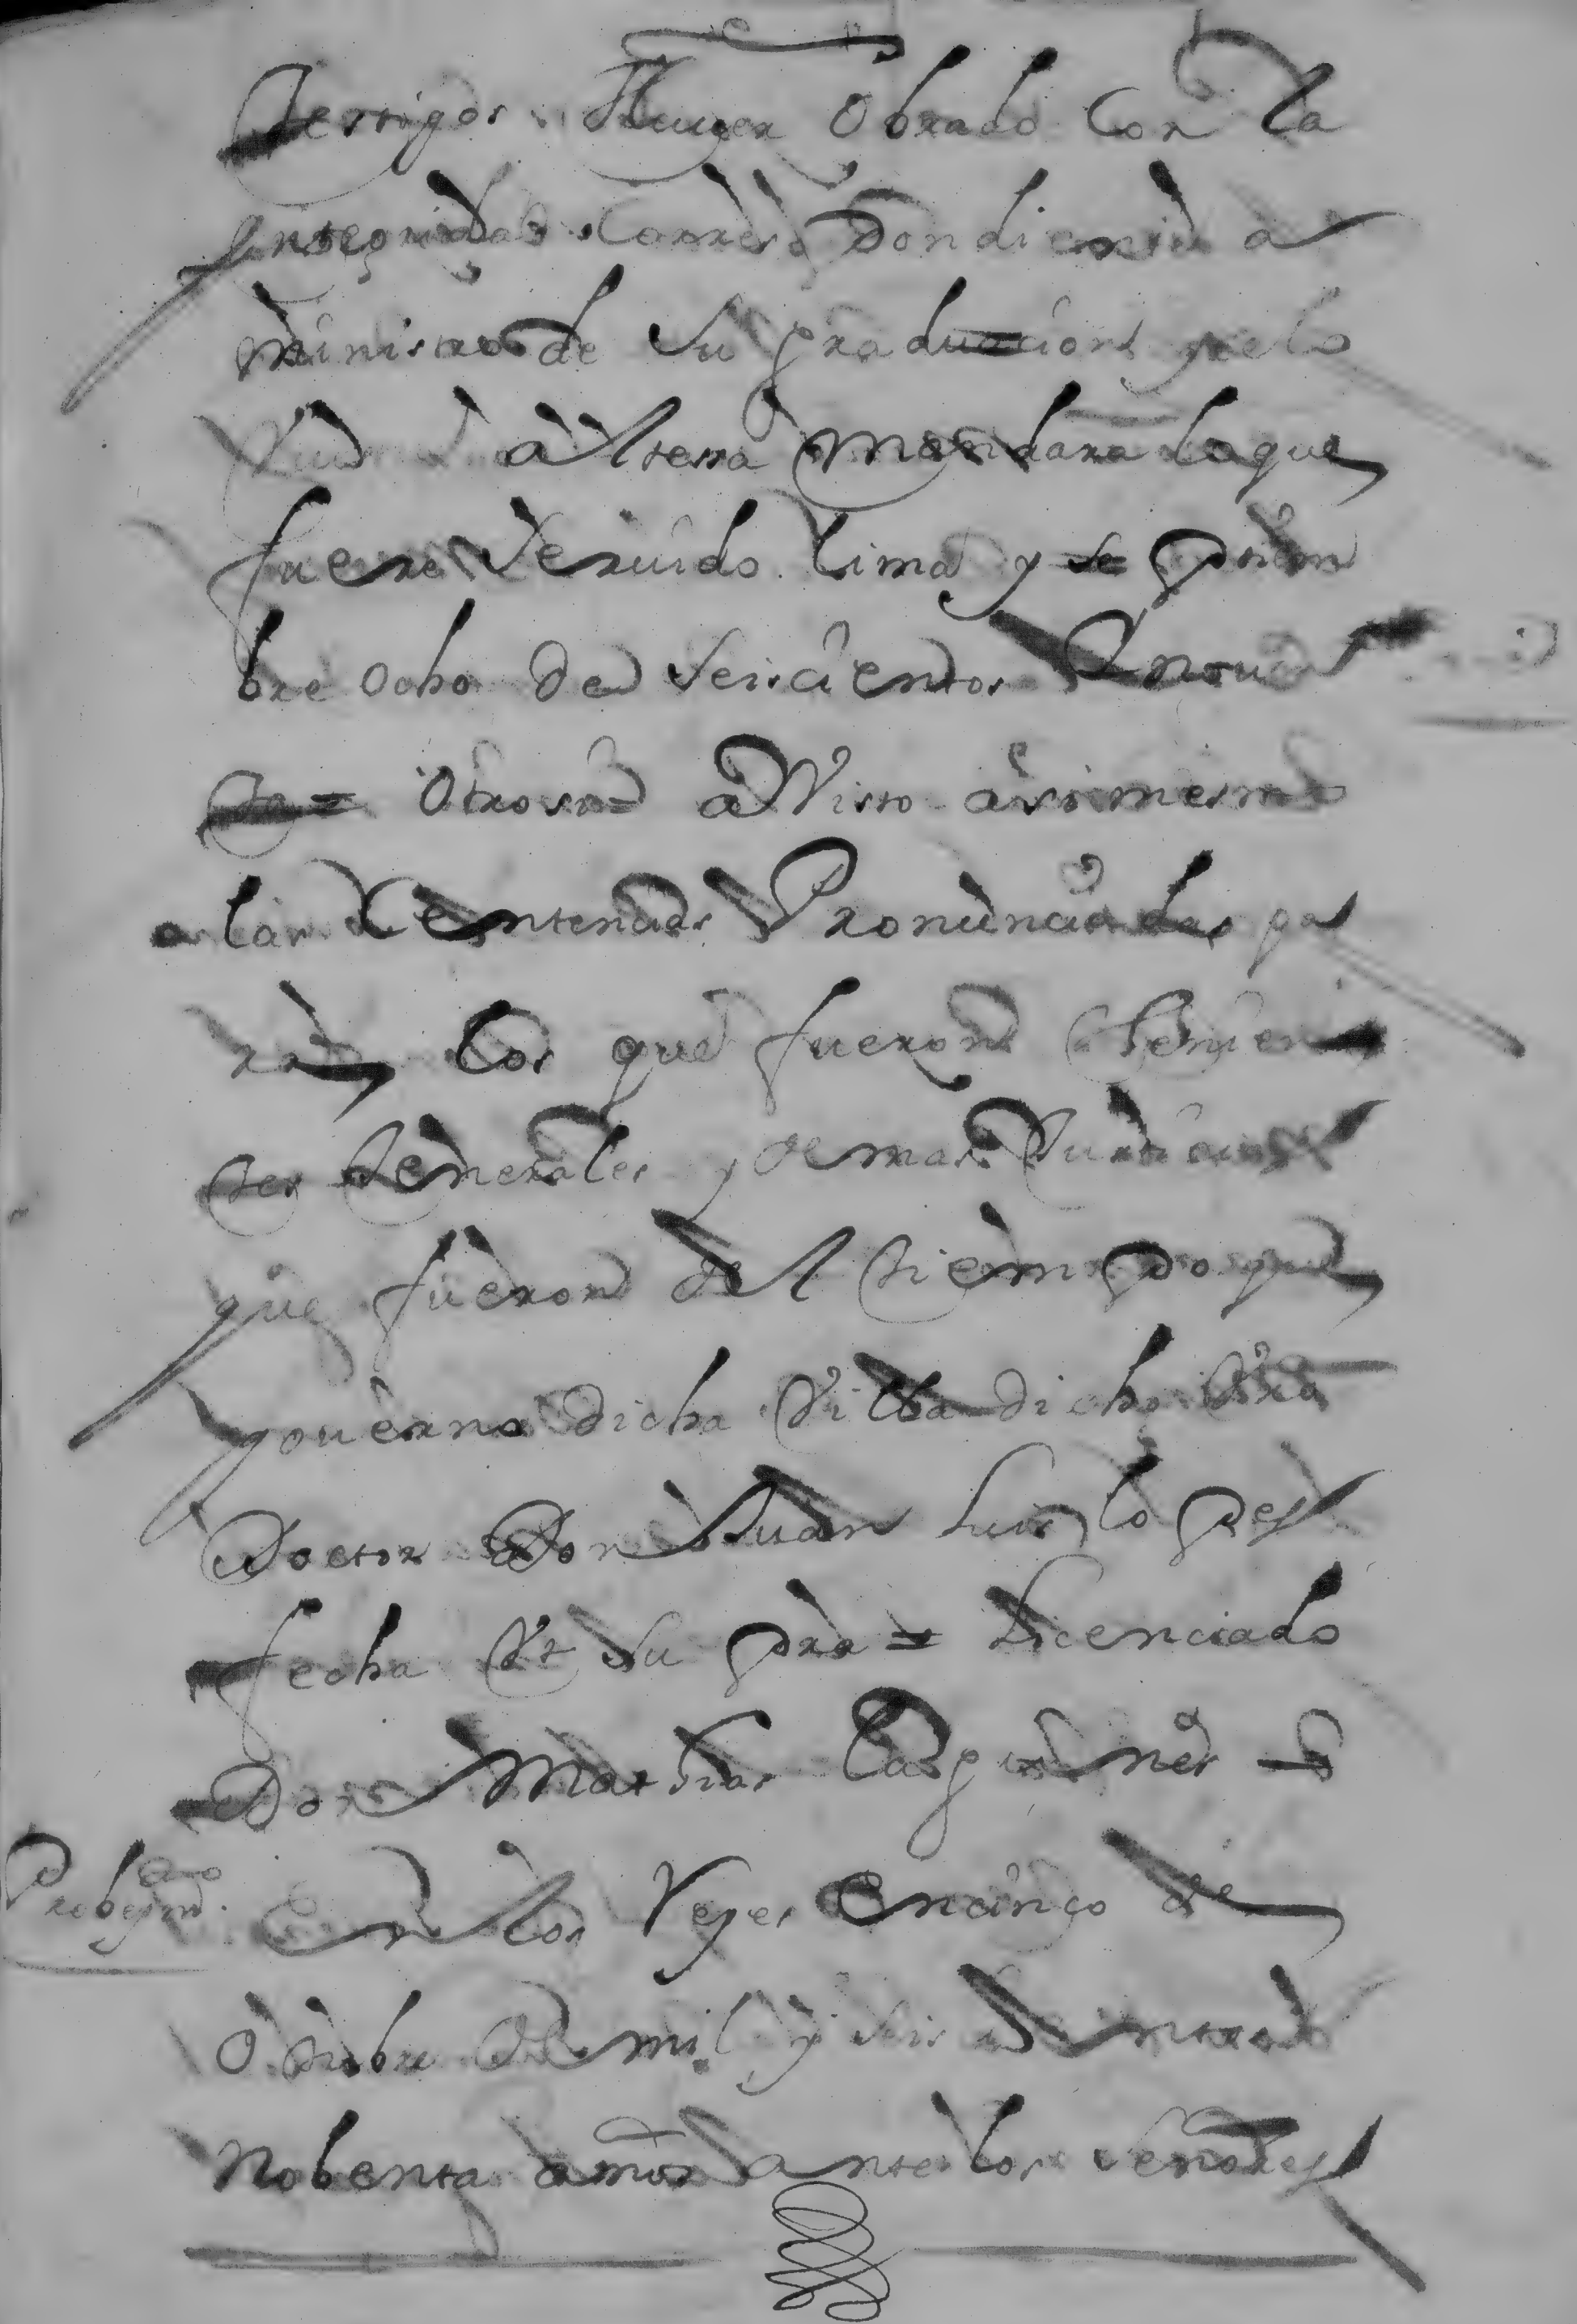 testigos Hauer Obrado Con la
Yntegridad Correspondiente a
ministro de su graduacion y elo
altessa Mandara loque
fuere Seruido Lima y se ptiem
bre ocho de seiscientos y nouen
ta = Otrosi a Visto asimesmo
las Sentencias Pronunciadas pa
ra los que fueron thenien
tes Generales y demas Justicias
que fueron del tiempo que
gouerno dicha Villa dicho
Doctor Don Juan Luis lopes
fecha Vt supra = Licenciado
Don Mathias Lagunes =
Probeymto
En los Reyes encinco de
Otubre de mil y seiscientos
Nobenta años ante los señores